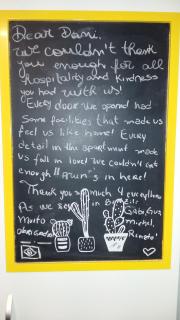 Dear Dani,
we couldn't thank
you enough for all
hospitality and kindness
you had with us!
Every door we opened had
Some facilities that made us
feel us like home! Every
detail in the apartment made
us fall in love! We couldn't eat
enough in here!
Thank you so much 4 everything
As we say in Brazil:
Muito
obrigado
Gabi, Gui,
Michel,
Renato!